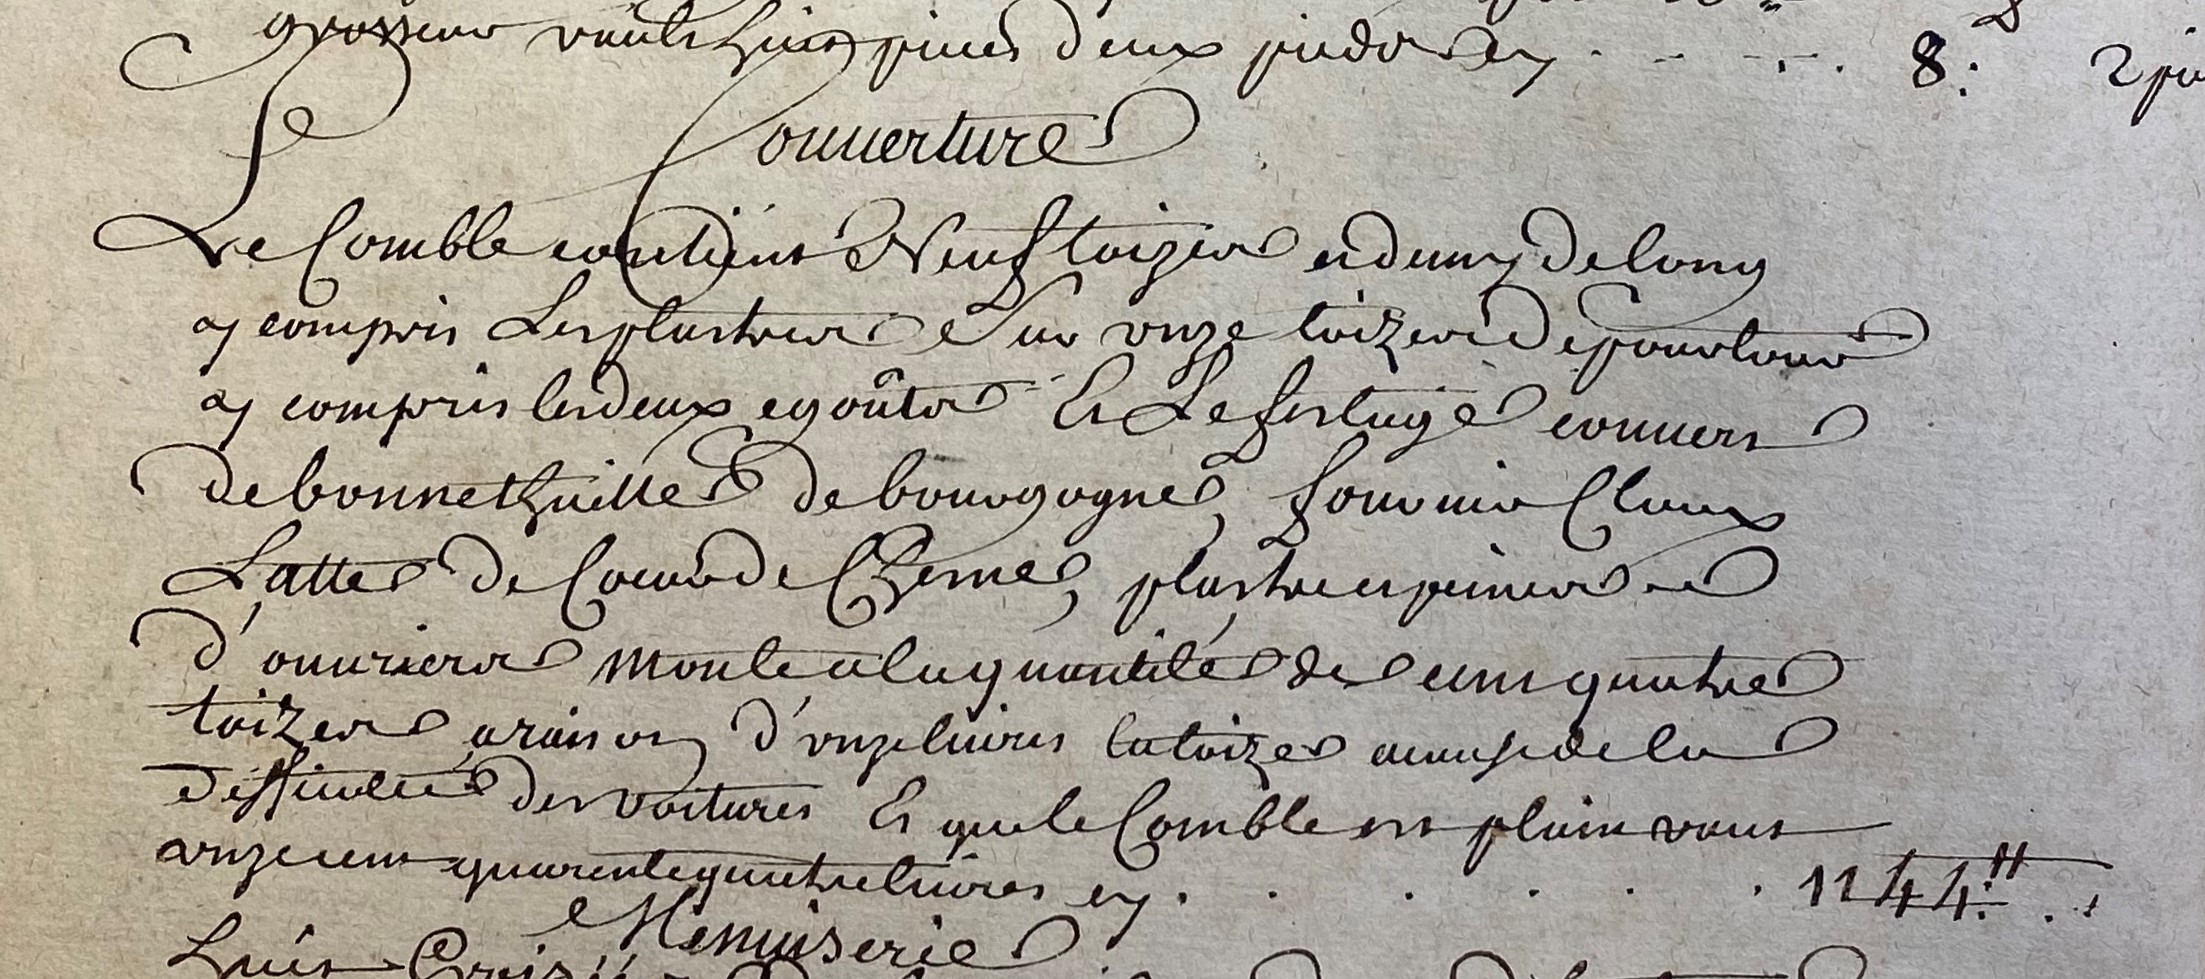 grosseur vault huict pieces deux pieds cy . . . . . 8: 2 pi
Couuerture
Le Comble contient Neuf toizes et demy de long
y compris Les plastres Sur onze toizes de pourtour
y compris les deux egoûts Et Le festage couuert
de bonne thuille de bourgogne, fournir Cloux
Latte de Coeur de Chesne, plastre et peines
d'ouuriers monte a la quantité de cent quatre
toizes, a raison d'onze liures la toize a cause de la
difficulté des voitures Et que le Comble est plain vaut
onze cent quarente quatre liures cy . . . . . . 1144:ᴴ . .
Menuiserie
Huict Croizée